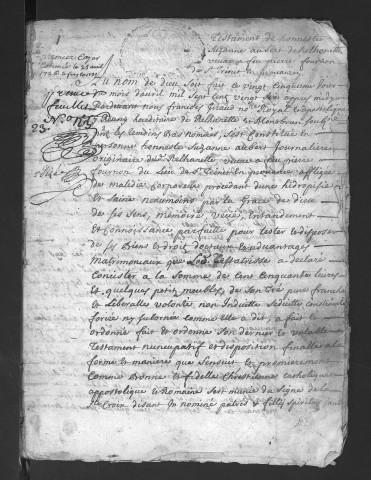 Testament de honneste
Suzanne aubert de
veuve a feu pierre fournon
de St
premier Cayer
Au nom de dieu soit fait ce vingt cinquieme Jour
du mois d'avril mil sept cent vingt six apres midy
feuillet pardevant nous francois Giraud no.re Royal
et
les temoins bas nommés, s'est Constituée en
personne honneste Suzanne aubert Journaliere
originaire de vefve a feu pierre
fournon du Lieu de St affligée
de maladie Corporelle procedant d'une hidropisie
et Saine neanmoins par la Grace de dieu
de ses sens, memoire, veue, Entendement
et Connoissance parfaitte pour tester et disposer
de ses Biens et droits et advantages
matrimoneaux que Lad. Testatrisse a declaré
Consister a la Somme de Cent Cinquante livres
et quelques petits meubles, de Son Gré pure franche
et Liberalle volonté, non Induitte Seduitte
forcée ny subornée comme elle a dit, a fait et
ordonné fait et ordonne Son dernier et valable
Testament nuncupatif et disposition finalle en la
forme et maniere que Sensuit et premierement
Comme Bonne et fidelle Chrestienne Catholique
appostolique et Romaine Sest munie du Signe de la
Ste Croix disant In nomine patris et filii et spiritus sancti